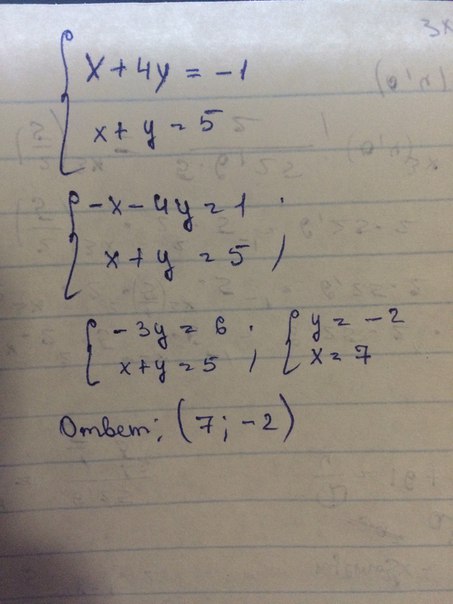 x + 4y = -1
x + y = 5
-x - 4y = 1 ;
x + y = 5
-3y = 6 ; y = -2
x + y = 5 x = 7
Ответ: (7; -2)